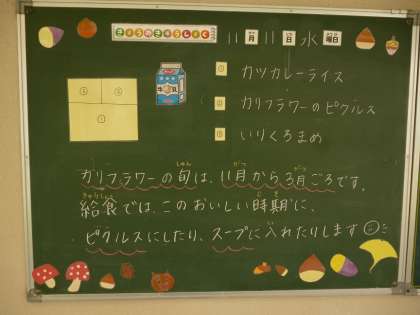 きょうのきゅうしょく
11月11日水曜日
牛乳
② ③
①
1 カツカレーライス
2 カリフラワーのピクルス
3 いりくろまめ
カリフラワーの旬は、11月から3月ごろです。
給食では、このおいしい時期に、
ピクルスにしたり、スープに入れたりします